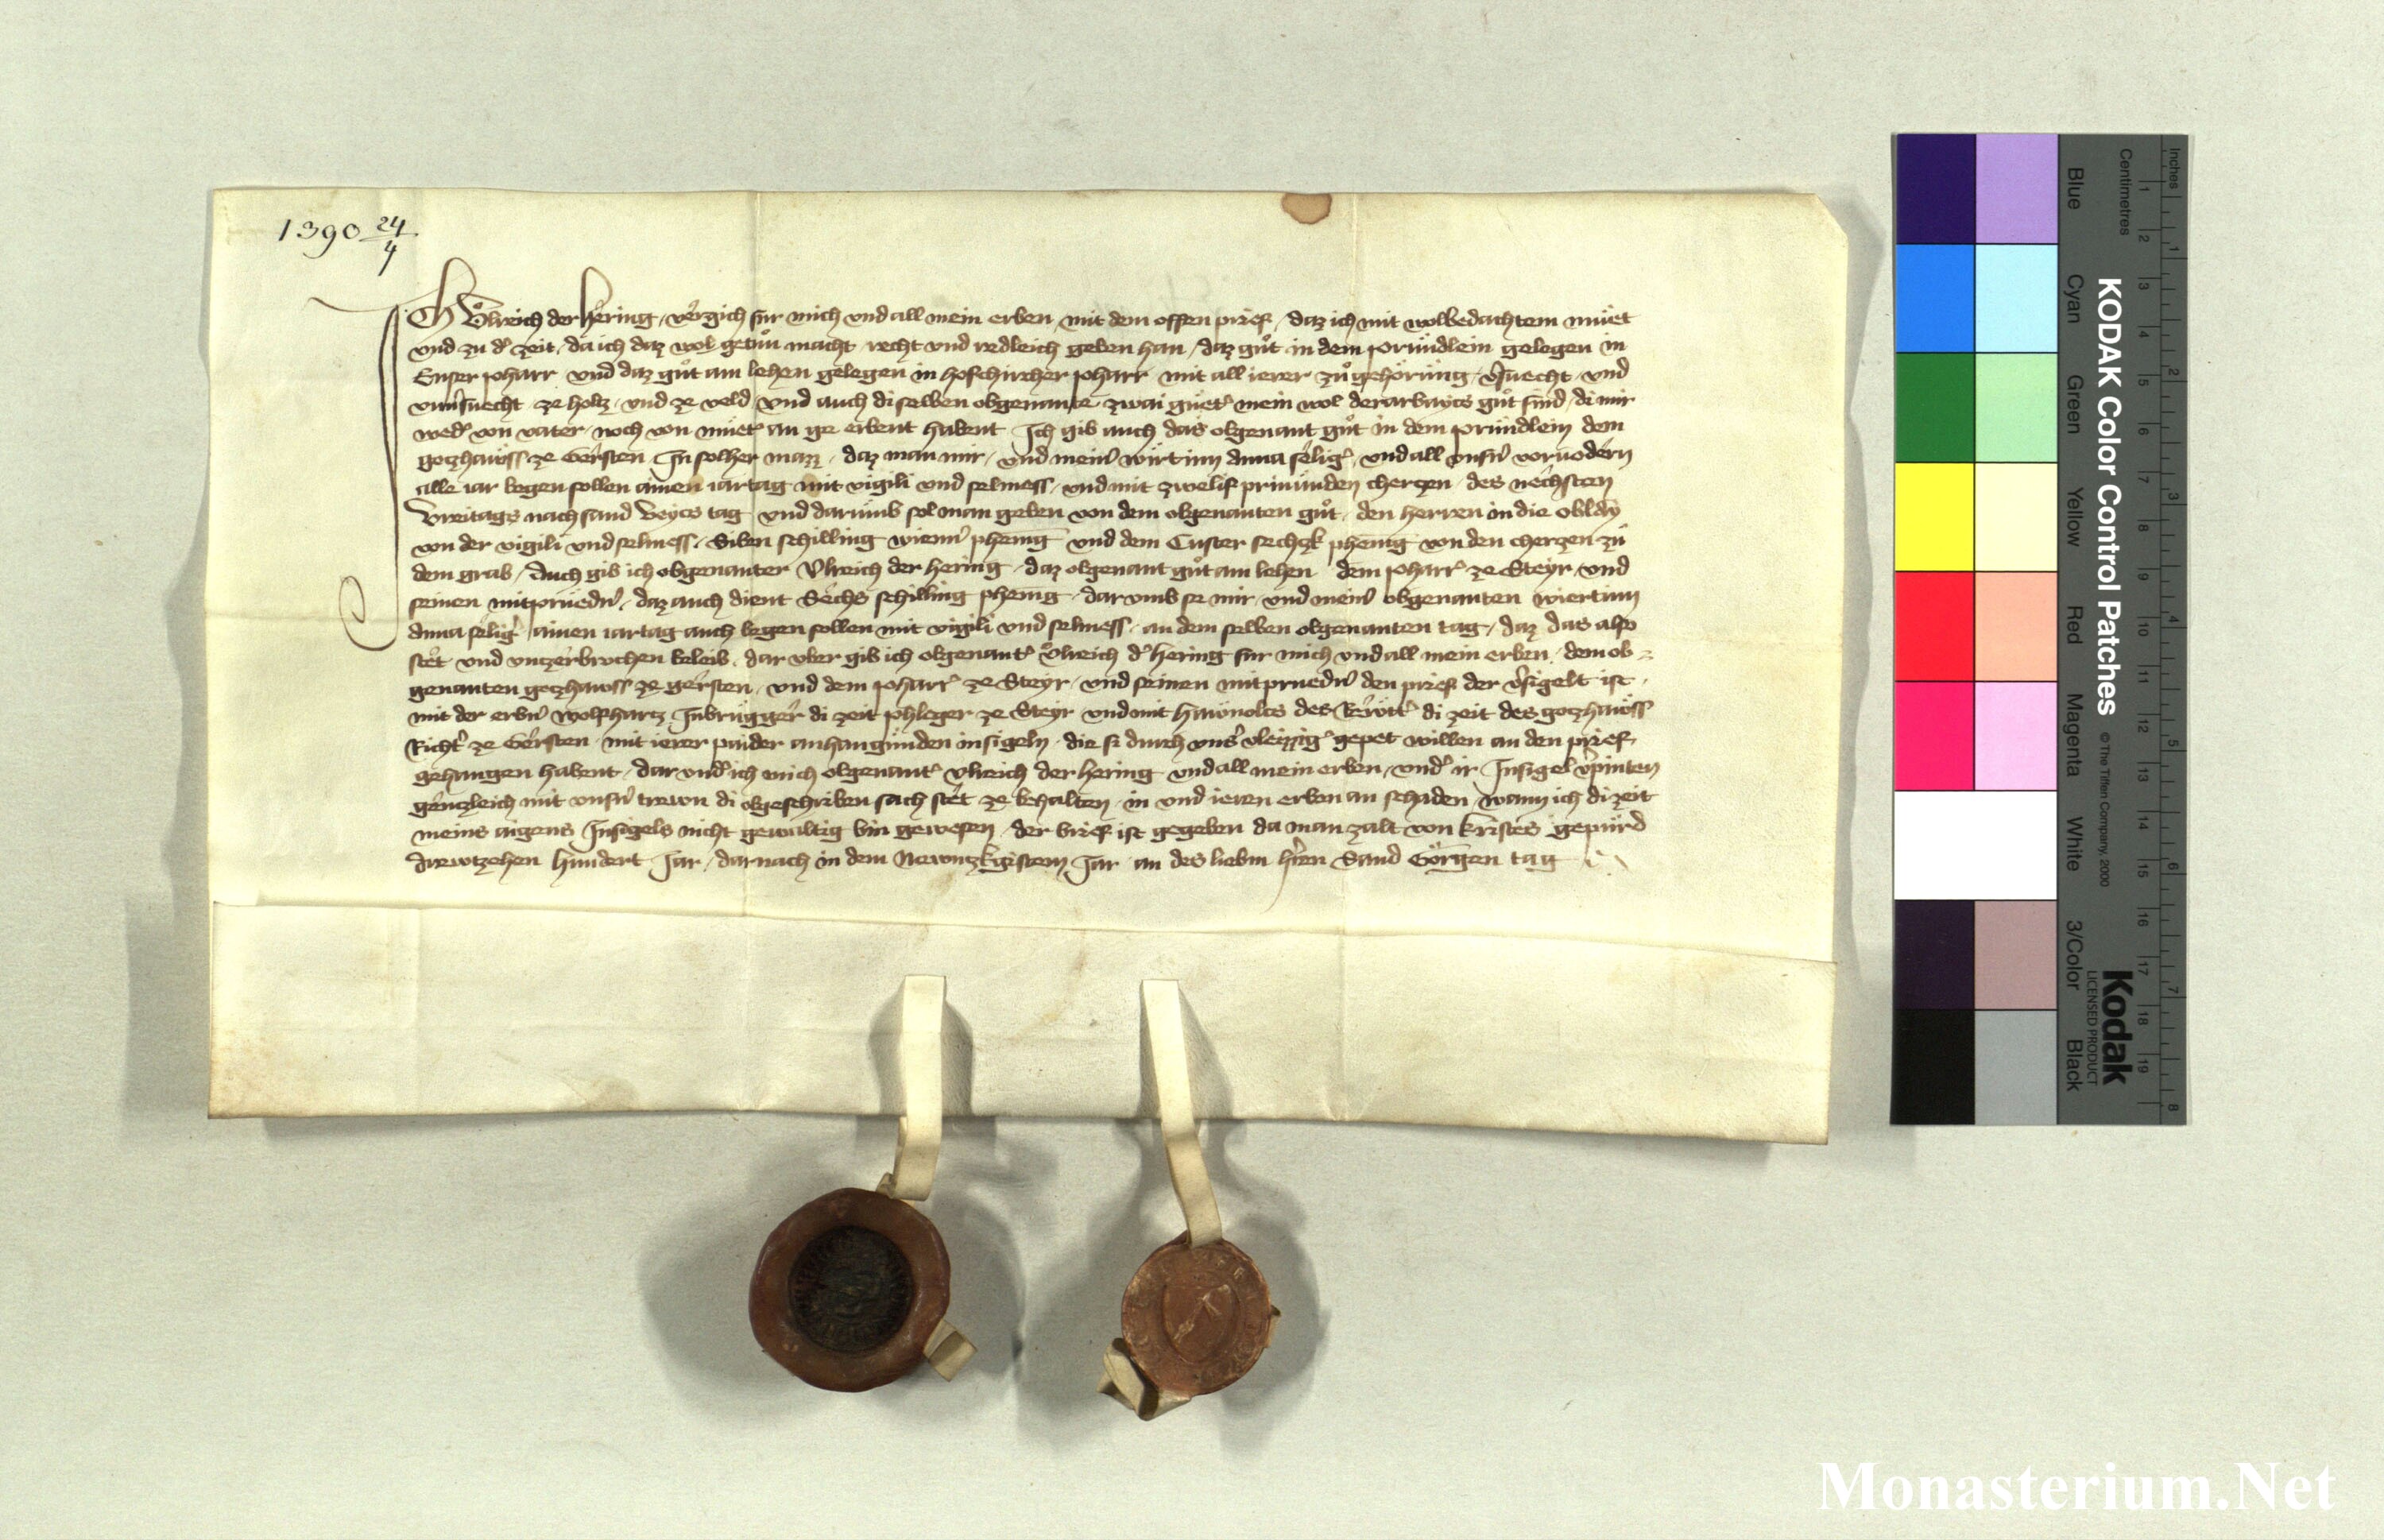 1390 24/4
Ich Ůlreich der Hering vergich fur mich vnd all mein erben mit dem offen prief daz ich mit wolbedachtem muet
vnd zu d' zeit da ich daz wol getůn macht recht vnd redleich geben han daz gůt in dem prundlein gelegen in
Enser pharr vnd daz gůt am lehen gelegen in hofchircher pharr mit all ierer zůgehorung v'suecht vnd
vnu'suecht ze holtz vnd ze veld vnd auch di selben obgenante zwai guet' mein wol derarbaycs gůt sind di mir
wed' von vater noch von muet' an ge erbent habent Ich gib auch das obgenant gůt in dem prundlein dem
gotzhawss ze Gersten In solher mazz daz man mir vnd mein' wirtinn Anna selig' vnd all vnsn' voruodern
alle iar begen sollen ainen iartag mit vigili vnd selmess vnd mit zwelif prinunden cherzen des nechsten
Vreitags nach sand Veycs tag vnd darumb sol man geben von dem obgenanten gůt den herren in die oblay
von der vigili vnd selmess Siben schilling wienn' phenig vnd dem Custer sechzk phenig von den cherzen zu
dem grab Auch gib ich obgenanter Vlreich der Hering daz obgenant gůt am lehen dem pharr' ze Steyr vnd
seinen mitpruedn' daz auch dient Sechs schilling phenig dar vmb se mir vnd mein' obgenanten wiertinn
Anna selig' ainen iartag auch begen sollen mit vigili vnd selmess an dem selben obgenanten tag daz das also
stet vnd vnzerbrochen beleib dar vber gib ich obgenant' Ůlreich d' Hering fur mich vnd all mein erben dem ob=
genanten gotzhawss ze gersten vnd dem pharr' ze Steyr vnd seinen mitpruedn' den prief der v'sigelt ist
mit der erbn' Wolfhartz Inbrugger di zeit phleger ze Steyr vnd mit Hawnolts des di zeit des gotzhawss
Richt' ze Gersten mit ierer paider anhangunden insigeln die si durch vns' vleizzig' gepet willen an den prief
gehangen habent dar vnd' ich mich obgenant' Vlreich der Hering vnd all mein erben vnd' ir Insigel v'pinten
gentzleich mit vnsn' trewn di obgeschriben sach stet ze behalten in vnd ieren erben an schaden wann ich di zeit
meins aigens Insigels nicht gewaltig bin gewesen der brief ist gegeben da man zalt von Kristes gepurd
drewtzehen hundert Jar darnach in dem Newntzkgistem Jar an des liebm h'ren Sand Görgen tag
KODAK Color Control Patches
© The Tiffen Company, 2000
Kodak
LICENSED PRODUCT
Inches
Centimetres
1 2 3 4 5 6 7 8
1 2 3 4 5 6 7 8 9 10 11 12 13 14 15 16 17 18 19
Blue
Cyan
Green
Yellow
Red
Magenta
White
3/Color
Black
Monasterium.Net